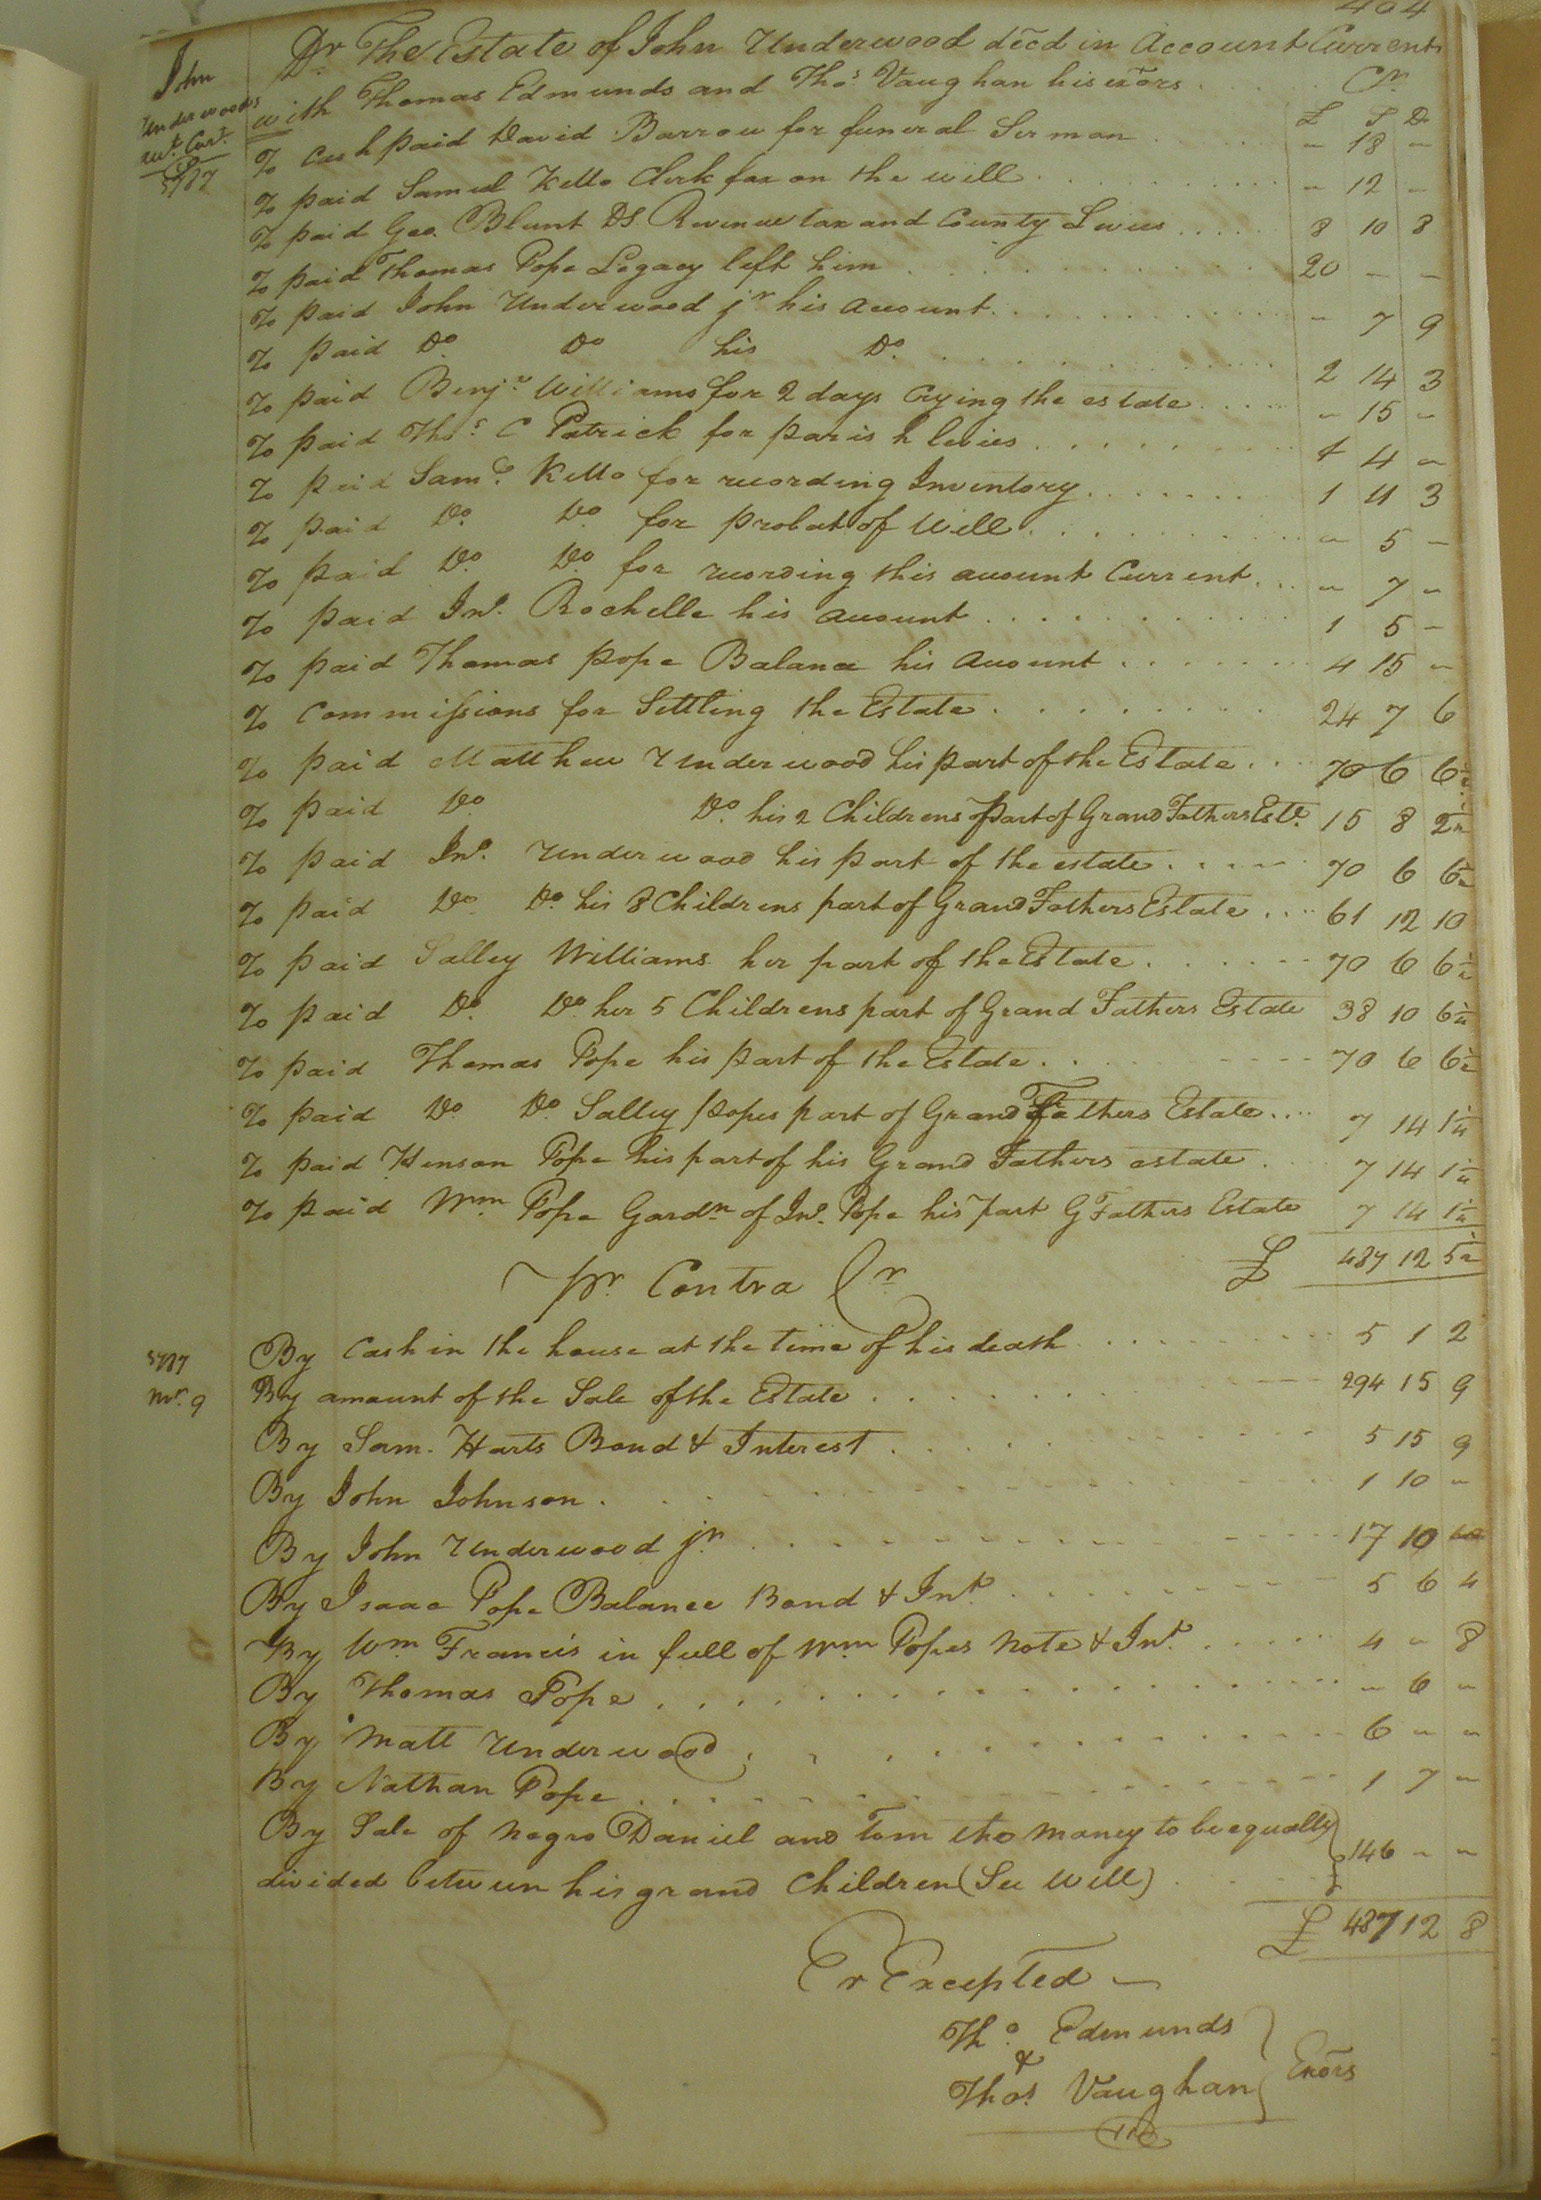 404
Dr The Estate of John Underwood decd in Account Current
with Thomas Edmunds and Thos Vaughan his exors Cr
John
Underwoods
Act. Curt.
£ S D
To Cash paid David Barrow for funeral Sermon - 18 -
To paid Samuel Kello Clerk fax on the will - 12 -
To paid Geo. Blunt DS Revenue tax and County Levies 8 10 8
To paid Thomas Pope Legacy left him 20 - -
To paid John Underwood jr his account - 7 9
To paid Do Do his Do 2 14 3
To paid Benja Williams for 2 days Crying the estate - 15 -
To paid Thos C Patrick for parish levies 4 -
To paid Saml Kello for recording Inventory 1 11 3
To paid Do Do for probat of Will - 5 -
To paid Do Do for recording this account Current - 7 -
To paid Jno. Rochelle his account 1 5 -
To paid Thomas pope Balance his account 4 15 -
To Commissions for Settling the Estate 24 7 6
To paid Matthew Underwood his part of the Estate 70 6 6½
To paid Do Do his 2 Childrens part of Grand Fathers Este 15 8 2½
To paid Jno. Underwood his part of the estate 70 6 6½
To paid Do Do his 8 Childrens part of Grand Fathers Estate 61 12 10
To paid Salley Williams her part of the Estate 70 6 6½
To paid Do Do her 5 Childrens part of Grand Fathers Estate 38 10 6¼
To paid Thomas Pope his part of the Estate 70 6 6½
To paid Do Do Salley popes part of Grand Fathers Estate 7 14 1¼
To paid Henson Pope his part of his Grand Fathers estate 7 14 1¼
To paid Wm Pope Gardn of Jno. Pope his part G Fathers Estate 7 14 1¼
£ 487 12 5½
Pr. Contra Cr
By Cash in the house at the time of his death 5 1 2
Mr. 9 By amount of the Sale of the Estate 294 15 9
By Sam. Harts Bond & Interest 5 15 9
By John Johnson 1 10 -
By John Underwood jr 17 10
By Isaac Pope Balance Bond & Int. 5 6 4
By Wm Francis in full of Wm Popes note & Int. 4 - 8
By Thomas Pope - 6 -
By Matt Underwood 6 - -
By Nathan Pope 1 7 -
By Sale of negro Daniel and Tom the money to be equally
divided between his grand Children (See Will) 146 - -
£ 487 12 8
Er Excepted
Tho. Edmunds
&
Thos Vaughan
Exors